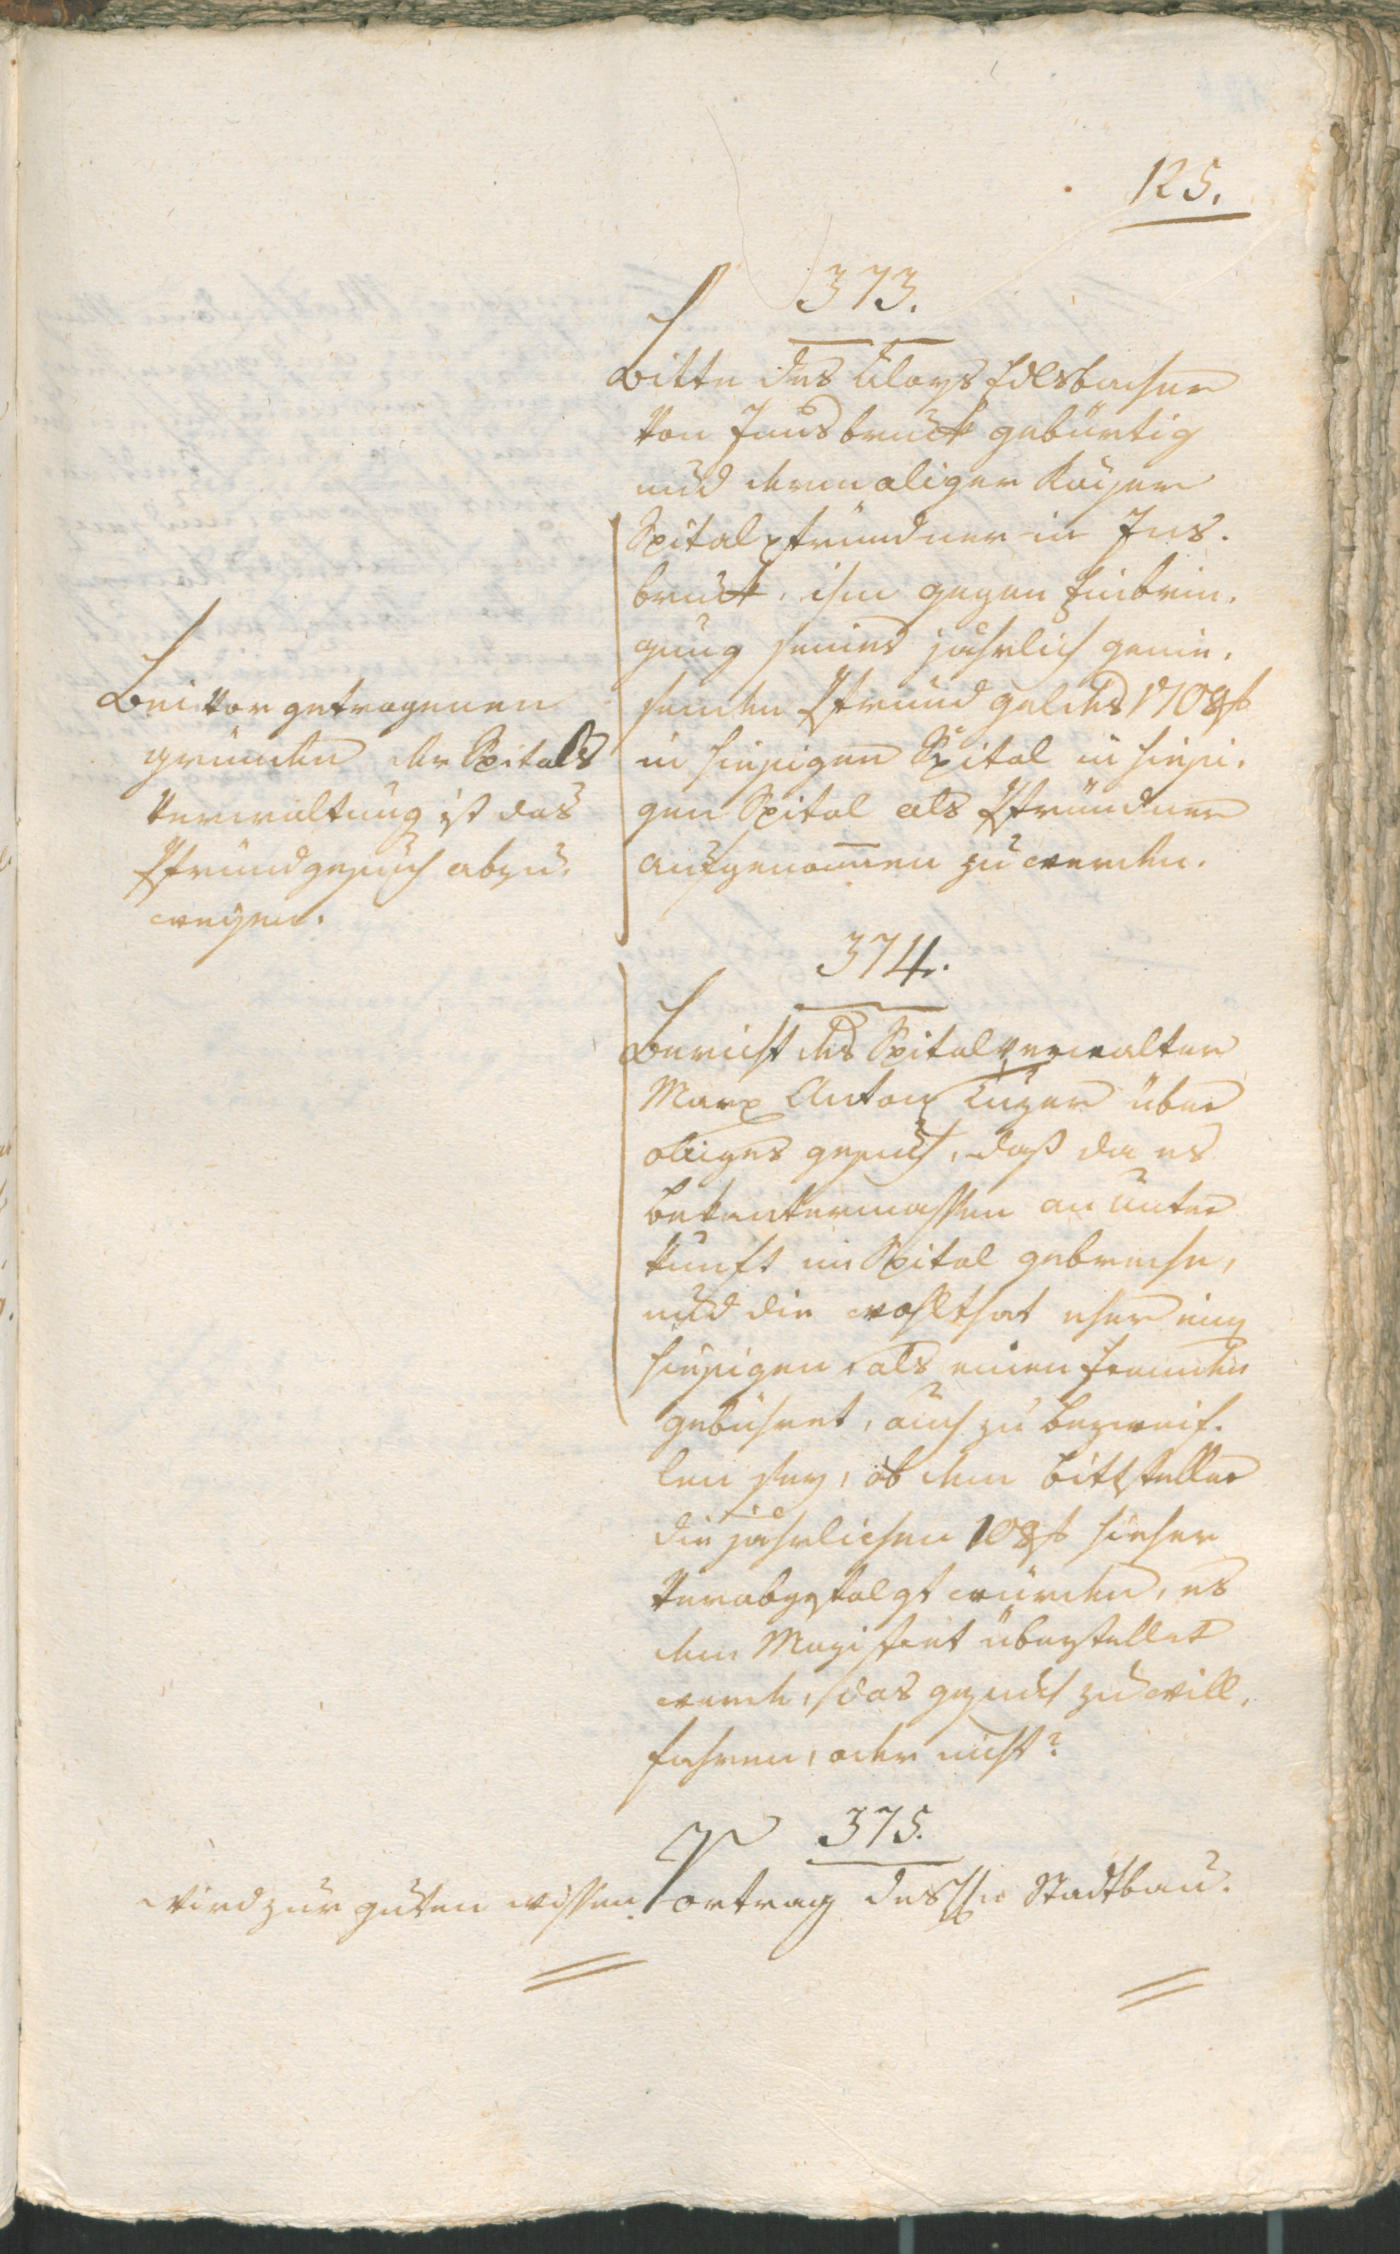 125.
373.
Bitte des Aloys Edlsbacher
von Innsbruck gebürtig
und dermaliger
Spitalpfründner in Ins-
bruck, ihm gegen Einbrin-
gung seines jährlich genie-
senden Pfründ geldes 108 f
in hiesigen Spital in hiesi-
gen Spital als Pfründner
aufgenommen zu werden.
Bei vorgetragenen
gründen der Spitals
Verwaltung ist das
Pfründgesuch abzu-
weisen.
374.
Bericht des Spitalverwalter
Marx Anton über
obiges gesuch, daß da es
bekantermassen an unter
kunft im Spital gebreche,
und die wohlthat eher ein
hiesigen, als einen fremden
gebühret, auch zu bezweif-
len sey, ob dem bittsteller
die jährlichen 108 f hieher
verabgefolgt würden, es
dem Magistrat überstellet
werde, das gesuch zu will-
fahren, oder nicht?
375.
Vortrag des Stadtbau-
wird zur guten wissen-